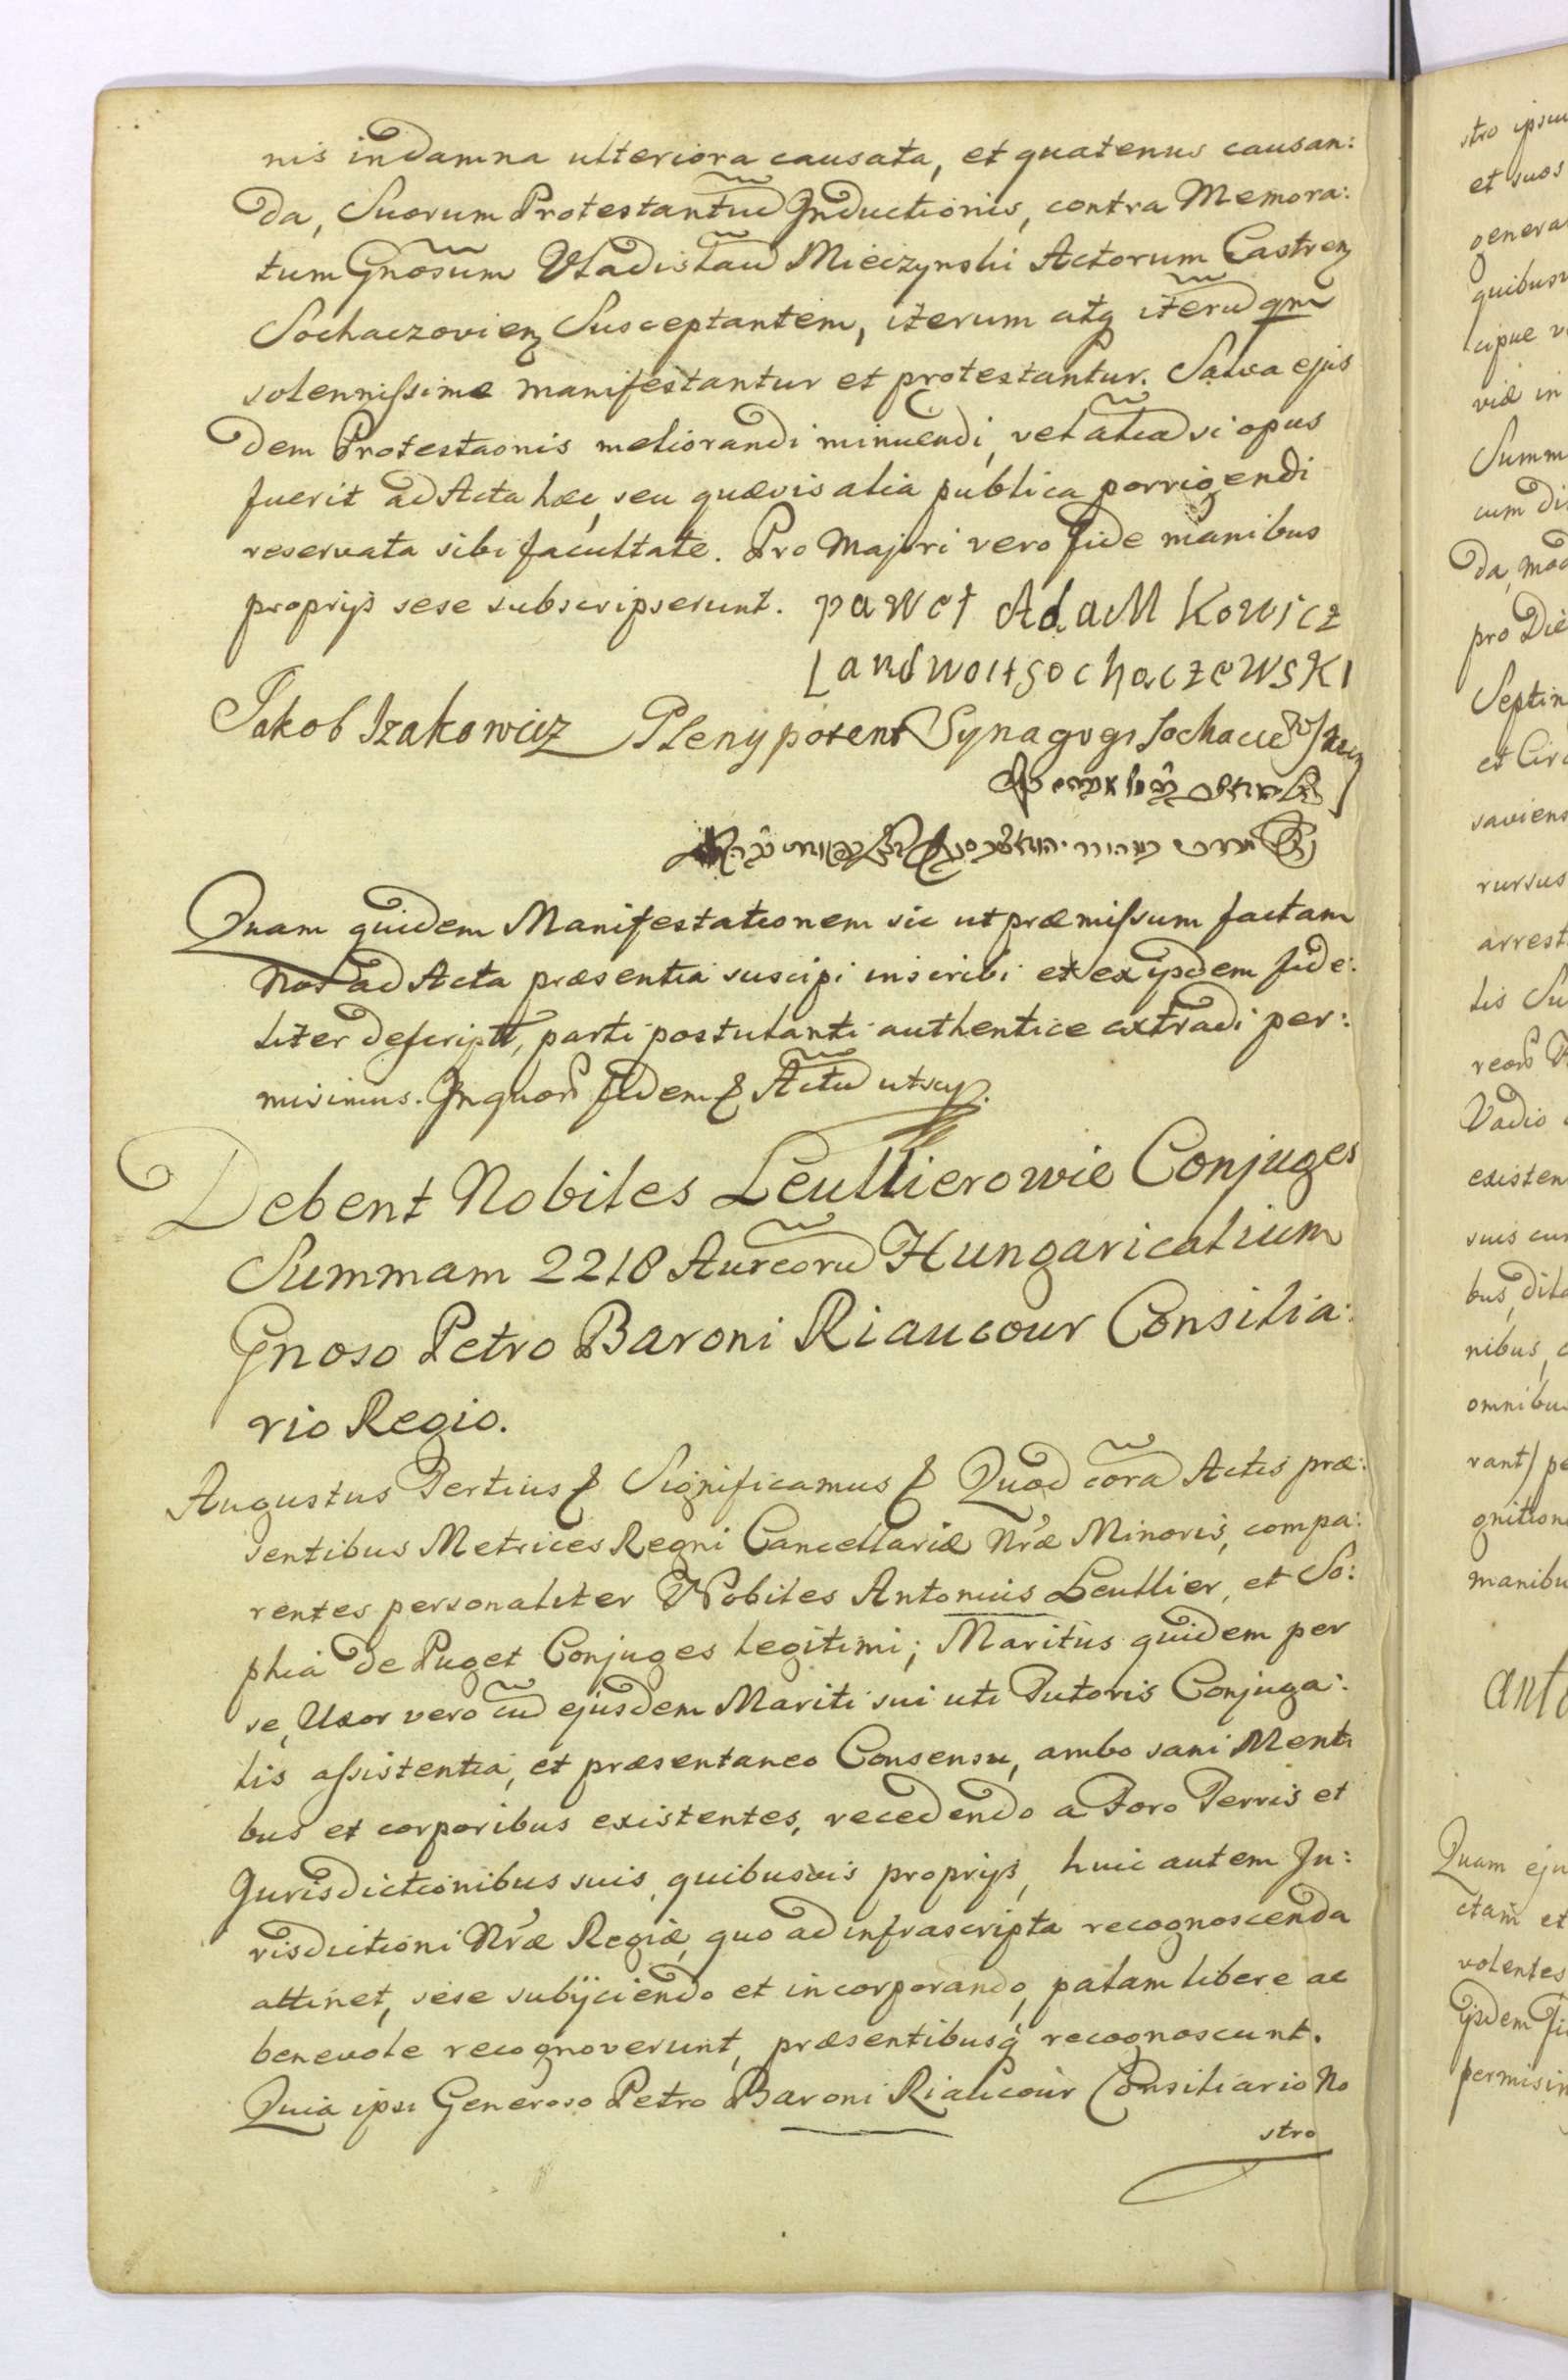 nis in damna ulteriora causata, et quatenus causan:
da, Suorum Protestantiũ Inductionis, contra Memora:
tum Gnosum Vladislaũ Mieczynski Actorum Castren
Sochaczovien Susceptantem, iterum atq iterũ qm
solennissime manifestantur et protestantur. Salva ejus
dem Protestaonis meliorandi minuendi, vel aliã si opus
fuerit ad Acta hæc, seu quævis alia publica porrigendi
reservata sibi facultate. Pro Majori vero fide manibus
proprijs sese subscripserunt. paweł AdaMKowicz
LandwoitSochaczewsKi
Jakob Izakowicz Plenypotent Synagogi
Quam quidem Manifestationem sic ut præmissum factam
Nos ad Acta præsentia suscipi inscribi et ex ijsdem fide:
liter descript, parti postulanti authentice extradi per:
misimus. In quor fidem & Actũ ut sup.
Debent Nobiles Leullierowie Conjuges
Summam 2218 Aureorũ Hungaricalium
Gnoso Petro Baroni Riaucour Consilia:
rio Regio.
Augustus Tertius & Significamus & Quod corã Actis præ:
sentibus Metrices Regni Cancellariæ Nræ Minoris, compa:
rentes personaliter Nobiles Antonius Leullier, et So:
phia de Puget Conjuges legitimi; Maritus quidem per
se, Uxor vero cũ ejusdem Mariti sui uti Tutoris Conjuga:
lis assistentia, et præsentaneo Consensu, ambo sani Menti
bus et corporibus existentes, recedendo a Foro Terris et
Jurisdictionibus suis, quibusvis proprijs, huic autem Ju:
risdictioni Nræ Regiæ, quo ad infrascripta recognoscenda
attinet, sese subijciendo et incorporando, palam libere ac
benevole recognoverunt, præsentibusq recognoscunt.
Quia ipsi Generoso Petro Baroni Riaucour Consiliario No
stro